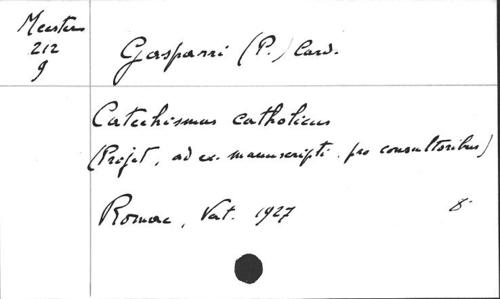 Meester
212
9
Gasparri (P.) Card.
Catechismus catholicus
(Projet, ad ex. manuscripti pro consultoribus)
Romae, Vat. 1927
8°